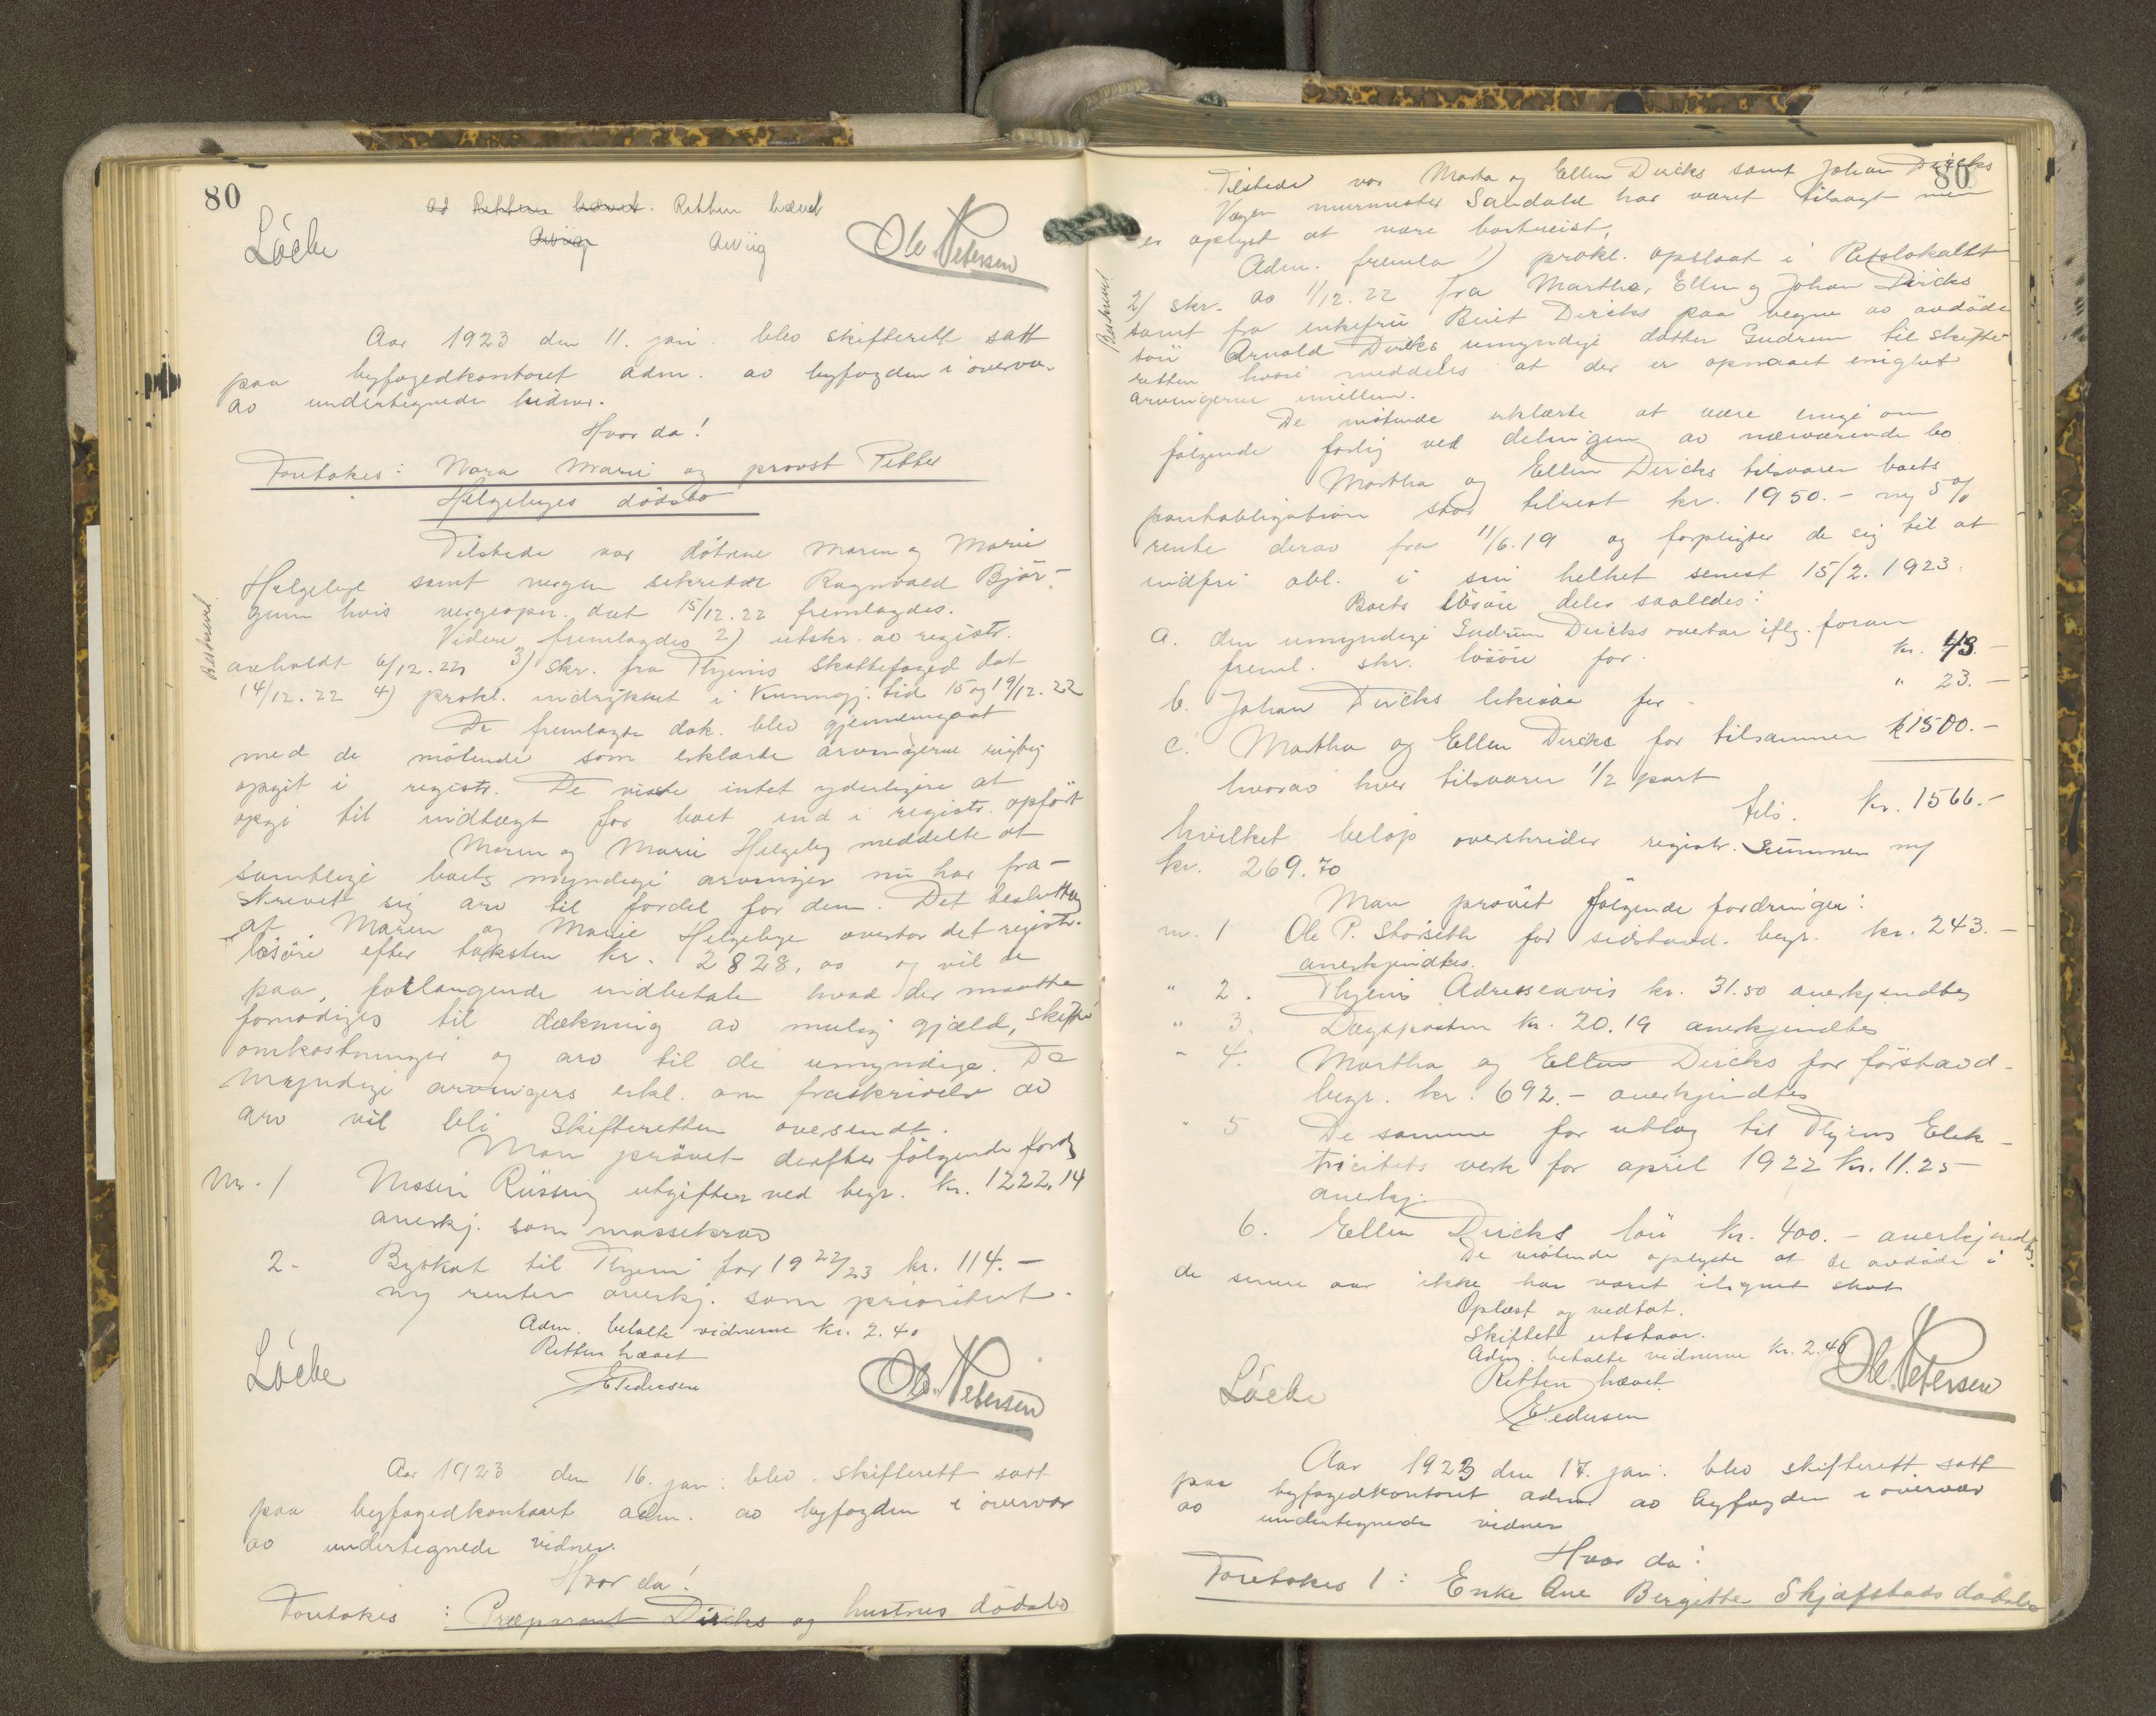 80
ad Retten hævet. Retten hævet
Löche Arviig Arviig Ole Petersen
Aar 1923 den 11. jan. blev skifterett satt
paa byfogedkontoret adm. av byfogden i overvær
av undertegnede vidner.
Hvor da!
Foretokes: Nora Marie og provst Petter
Helgebyes dödsbo
Tilstede var döttrene Maren og Marie
Helgebye samt vergen sekretær Ragnvald Björ-
gum hvis vergeopn. dat 15/12.22 fremlagdes.
Videre fremlagdes 2) utskr. av registr.
avholdt 6/12.22, 3) skr. fra Thjems Skattefoged dat
14/12.22 4) prokl. indrykket i Kunngj. tid 15 og 19/12.22
De fremlagte dok. blev gjennemgaat
med de mötende som erklærte arvingerne rigtig
opgit i registr. De visste intet yderligere at
opgi til indtægt for boet end i registr. opfört
Maren og Marie Helgeby meddelte at
samtlige boets myndige arvinger nu har fra-
skrevet sig arv til fordel for dem. Det besluttes
at Maren og Marie Helgebye overtar det registr.
lösöre efter taksten kr. 2828,00 og vil de
paa forlangende indbetale hvad der maatte
fornödiges til dækning av mulig gjæld, skifte
omkostninger og arv til de umyndige. De
myndige arvingers erkl. om fraskrivelse av
arv vil bli Skifteretten oversendt.
Man prövet derefter fölgende fordr
Nr. 1 Mosein Rüssing utgifter ved begr. Kr. 1222,14
anerkj. som massekrav
2. Byskat til Thjem for 1922/23 kr. 114.-
m/ renter anerkj. som prioritert.
Adm. betalte vidnerne Kr. 2.40
Retten hævet
Löche EPedersen Ole Petersen
Aar 1923 den 16. jan: blev skifterett satt
paa byfogedkontoret adm. av byfogden i overvær
av undertegnede vidner.
Hvor da!
Foretokes: Præparant Dircks og hustrus dödsbo
Beskrevet
80
Tilstede var Marta og Ellen Dircks samt Johan Dircks
Vergen murmester Sandahl har været tilsagt men
er oplyst at være bortreist,
Adm. fremla 1) prokl. opslaat i Retslokalet
2) skr. av 1/12.22 fra Martha, Ellen og Johan Dircks
samt fra enkefru Berit Dircks paa vegne av avdöde
sön Arnold Dircks umyndige datter Gudrun til skifte-
retten hvori meddeles at der er opnaaet enighet
arvingerne imellem.
De mötende erklærte at være enige om
fölgende forlig ved delingen av nærværende bo
Martha og Ellen Dircks tilsvarer boets
pantobligation stor tilrest kr. 1950.- m/ 5%
rente derav fra 11/6.19 og forpligter de sig til at
indfri obl. i sin helhet senest 15/2.1923.
Boets lösöre deles saaledes:
a. den umyndige Gudrun Dircks overtar iflg. foran
freml. skr. lösöre for kr. 43.-
b. Johan Dircks likesaa for " 23.-
c. Martha og Ellen Dircks for tilsammen k 1500.-
hvorav hver tilsvarer 1/2 part
tils. Kr. 1566.-
hvilket belöp overskrider registr. summen m/
kr. 269.70
Man prövet fölgende fordringer:
nr. 1 Ole P. Storseth for sidstavd. begr. kr. 243.-
anerkjendtes.
" 2. Thjems Adresseavis kr. 31.50 anerkjendtes
" 3. Dagsposten Kr. 20.19 anerkjendtes
" 4. Martha og Ellen Dircks for förstavd-
begr. kr. 692.- anerkjendtes
" 5 De samme for utlæg til Thjems Elek-
tricitets verk for april 1922 Kr. 11.25-
anerkj.
6. Ellen Dircks lön kr. 400.- anerkjendtes.
De mötende oplyste at de avdöde i
de senere aar ikke har været ilignet skat
Oplæst og vedtat.
Skiftet utstaar.
Adm. betalte vidnerne kr. 2.40
Retten hævet.
Löche EPedersen Ole Petersen
Aar 1923 den 17. jan. blev skifterett satt
paa byfogedkontoret adm. av byfogden i overvær
av undertegnede vidner
Hvor da:
Foretokes 1: Enke Ane Bergitte Skjefstads dödsbo